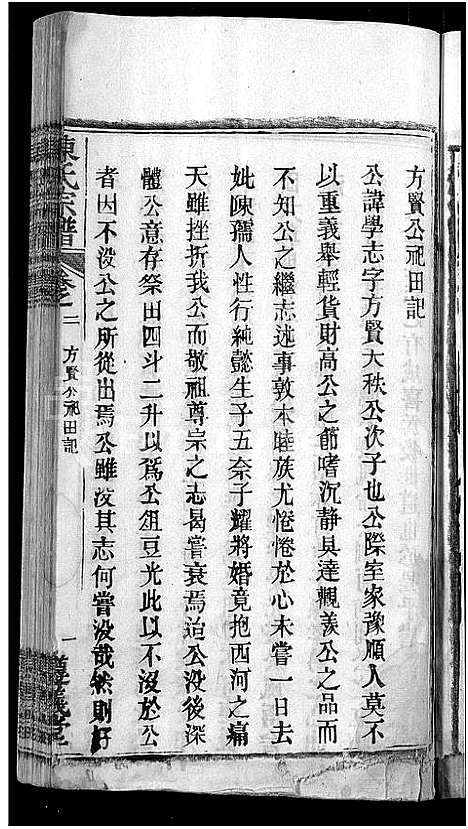 方賢公祀田記
公諱學志字方賢大秩公次子也公際室家豫順人莫不
以重義舉輕貨財高公之節嗜沉靜具達觀羨公之品而
不知公之繼志述事敦本睦族尤惓惓於心未嘗一日去
妣陳孺人性行純懿生子五奈子耀將婚竟抱西河之痛
天雖挫折我公而敬祖尊宗之志曷嘗衰焉治公沒後深
體公意存祭田四斗二升以爲公俎豆光此以不沒於公
者因不沒公之所從出焉公雖沒其志何嘗沒哉然則好
陳氏宗譜
卷之二
方賢公祀田記
一